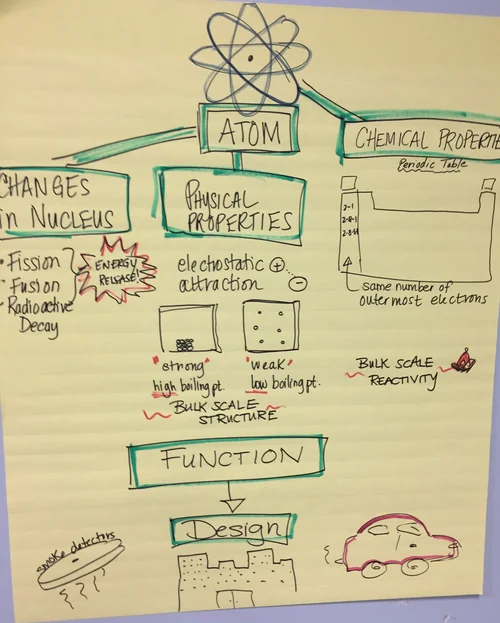 ATOM
CHANGES
in NUCLEUS
• Fission
• Fusion
• Radioactive
Decay
ENERGY
RELEASE!
PHYSICAL
PROPERTIES
electostatic
attraction
+
−
"strong"
high boiling pt.
"weak"
low boiling pt.
BULK SCALE
STRUCTURE
CHEMICAL PROPERTIE
Periodic Table
2-1
2-8-1
same number of
outermost electrons
BULK SCALE
REACTIVITY
FUNCTION
Design
smoke detectors